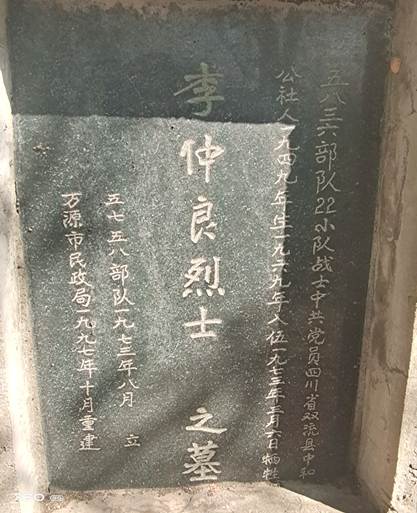 五八三六部队22小队战士中共党员四川省双流县中和
公社人一九四九年生一九六九年入伍一九七三年三月六日牺牲
李仲良烈士之墓
五七五八部队一九七三年八月 立
万源市民政局一九九七年十月重建